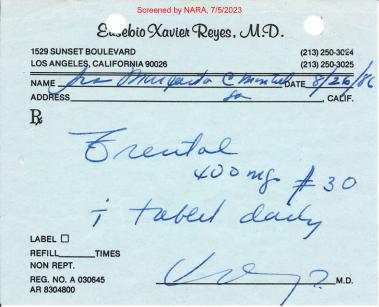 Screened by NARA, 7/5/2023
Eusebio Xavier Reyes, M.D.
1529 SUNSET BOULEVARD (213) 250-3024
LOS ANGELES, CALIFORNIA 90026 (213) 250-3025
NAME Margarita C DATE 8/26/86
ADDRESS , CALIF.
Rx
Trental
400 mgs #30
i tablet daily
LABEL ☐
REFILL TIMES
NON REPT.
REG. NO. A 030645 M.D.
AR 8304800